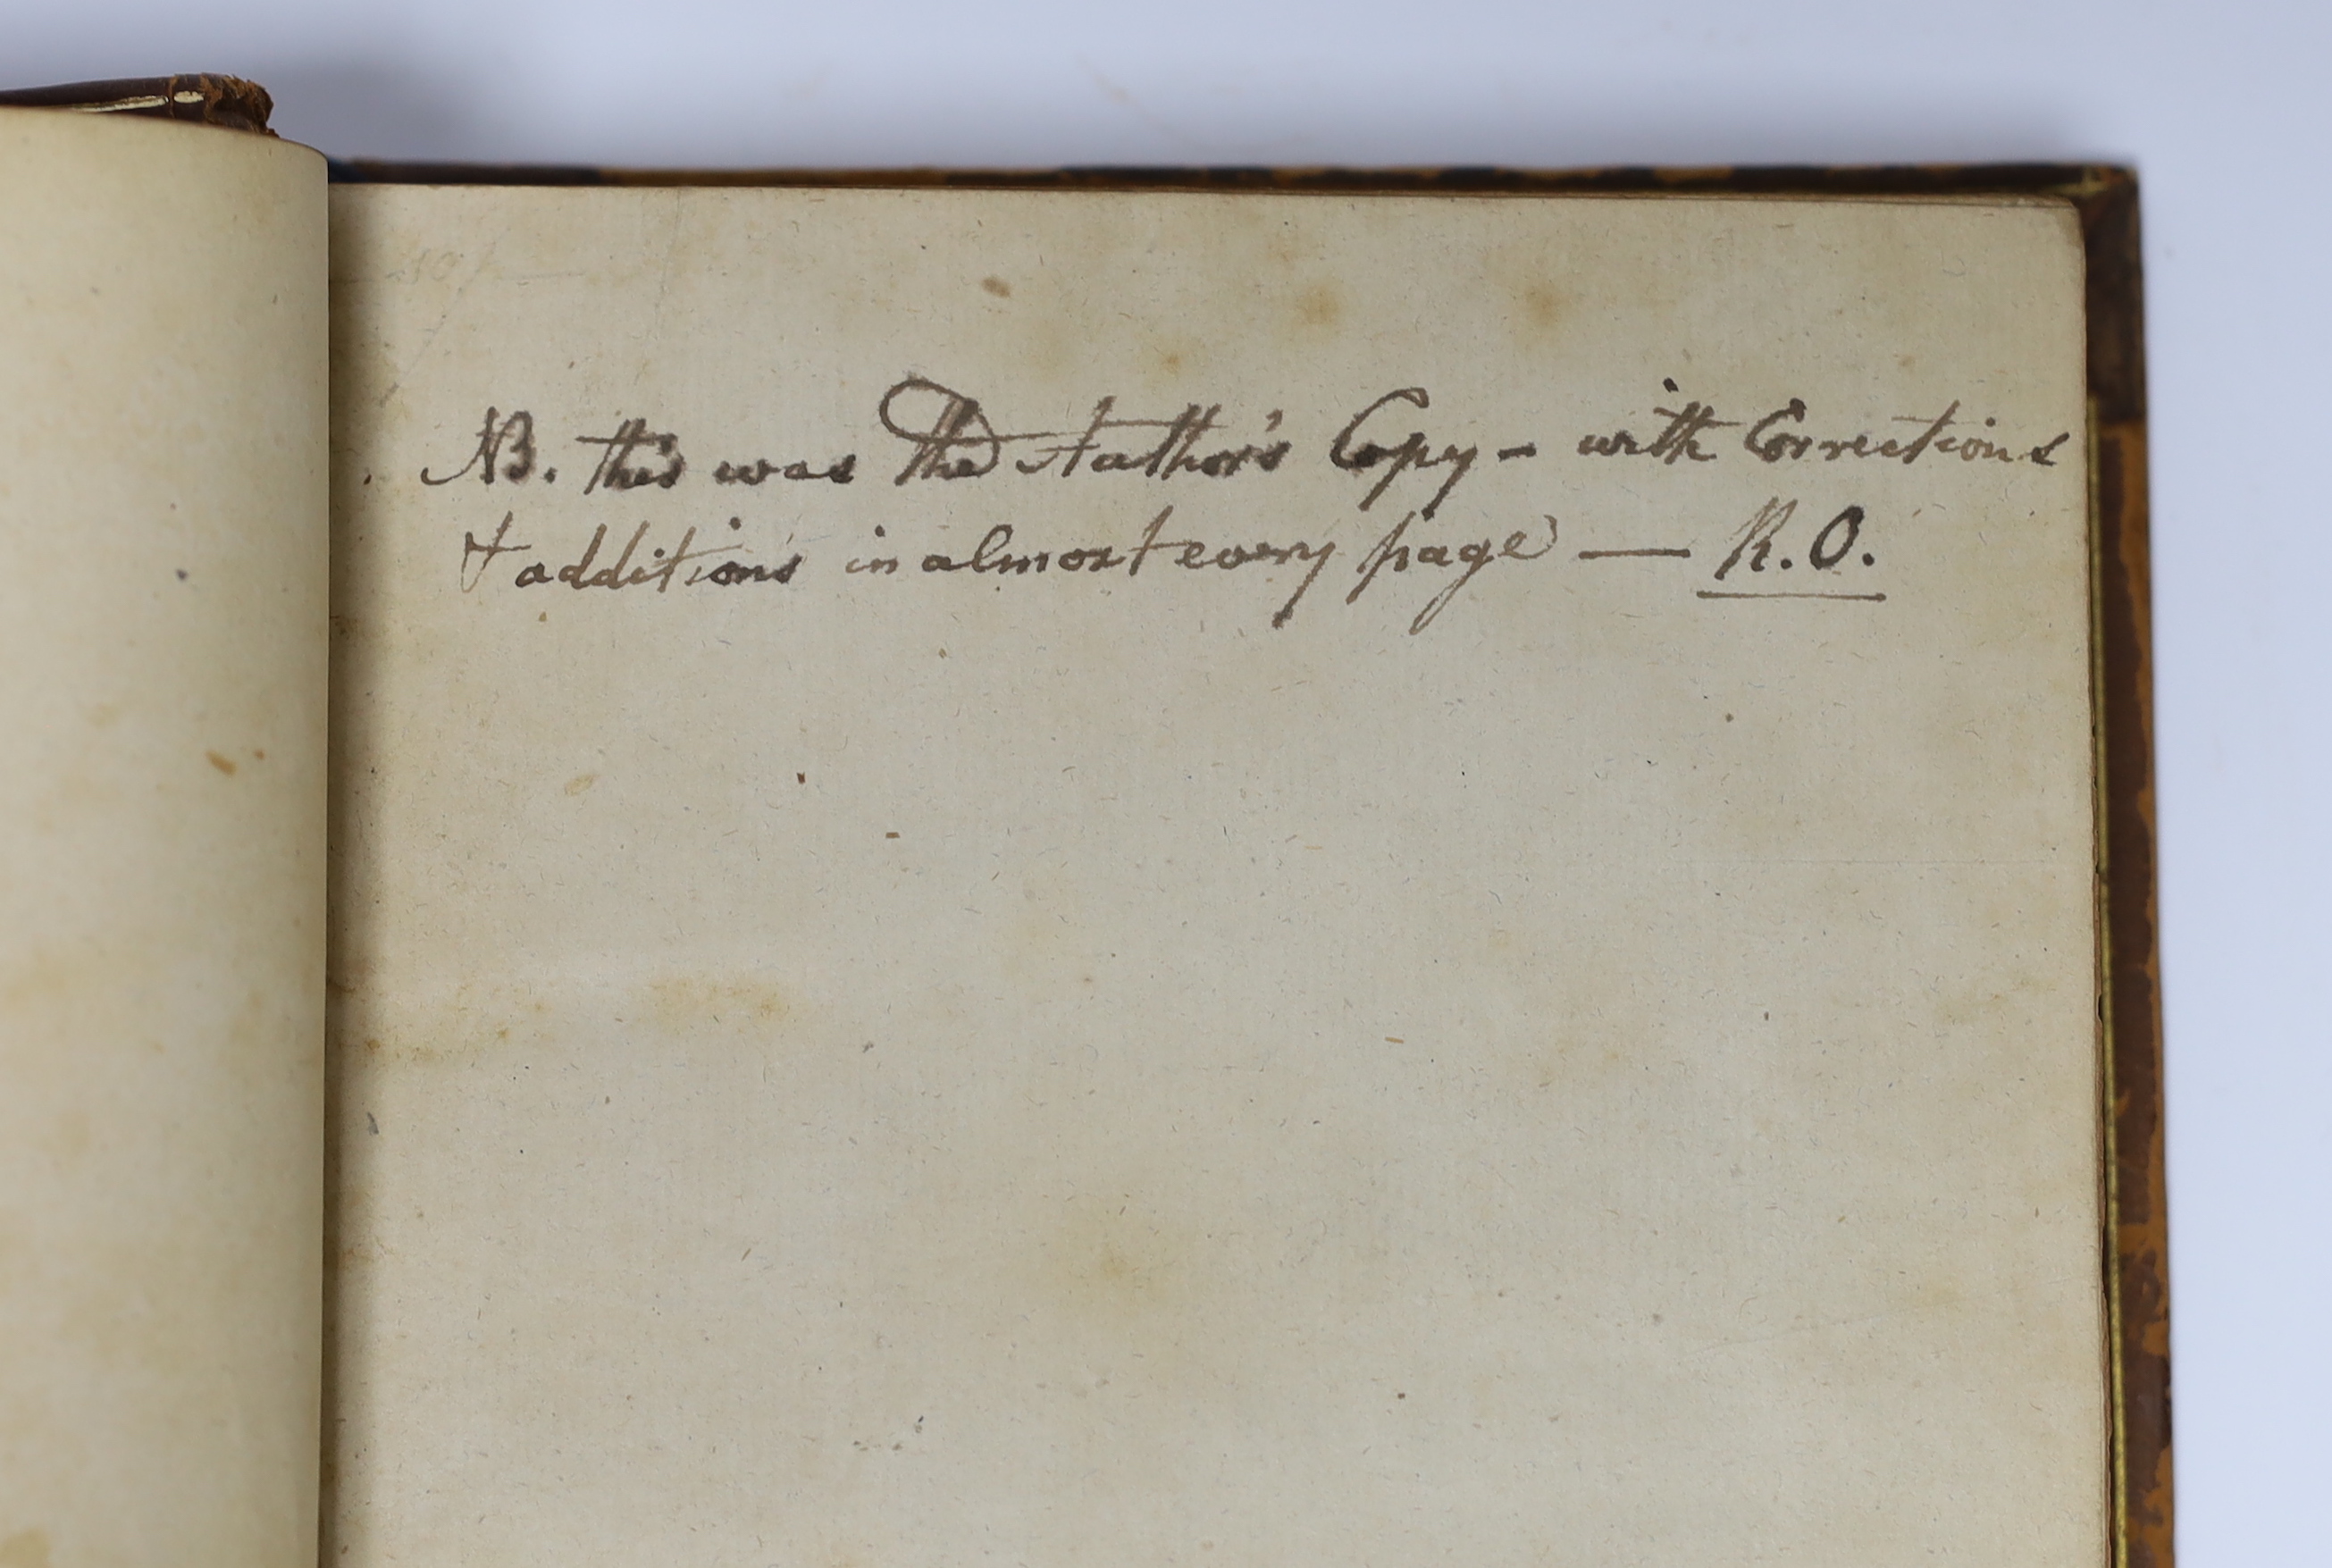 NB. this was the Author's Copy - with Corrections
& additions in almost every page — R.O.